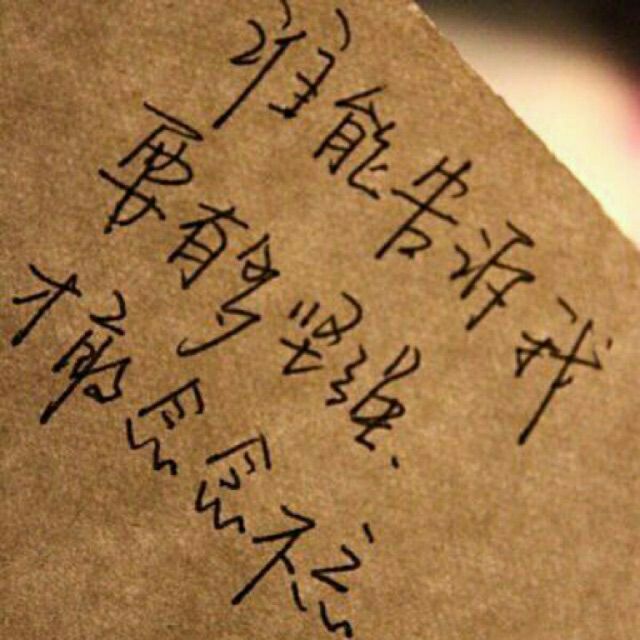 谁能告诉我
要有多坚强
才能念念不忘